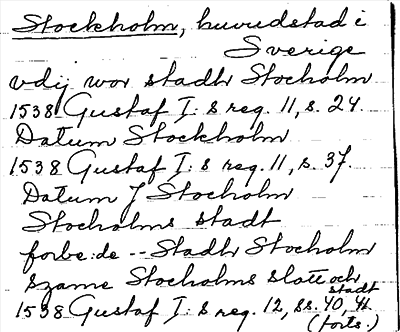 Stockholm, huvudstad i
Sverige
vdij wor stadh Stocholm
1538 Gustaf I:s reg. 11, s. 24.
Datum Stockholm
1538 Gustaf I:s reg. 11, s. 37.
Datum J Stocholm
Stocholms stadt
forbe:de -- Stadh Stocholm
szame Stocholms slott och stadt
1538 Gustaf I:s reg. 12, ss. 40, 41.
(forts.)